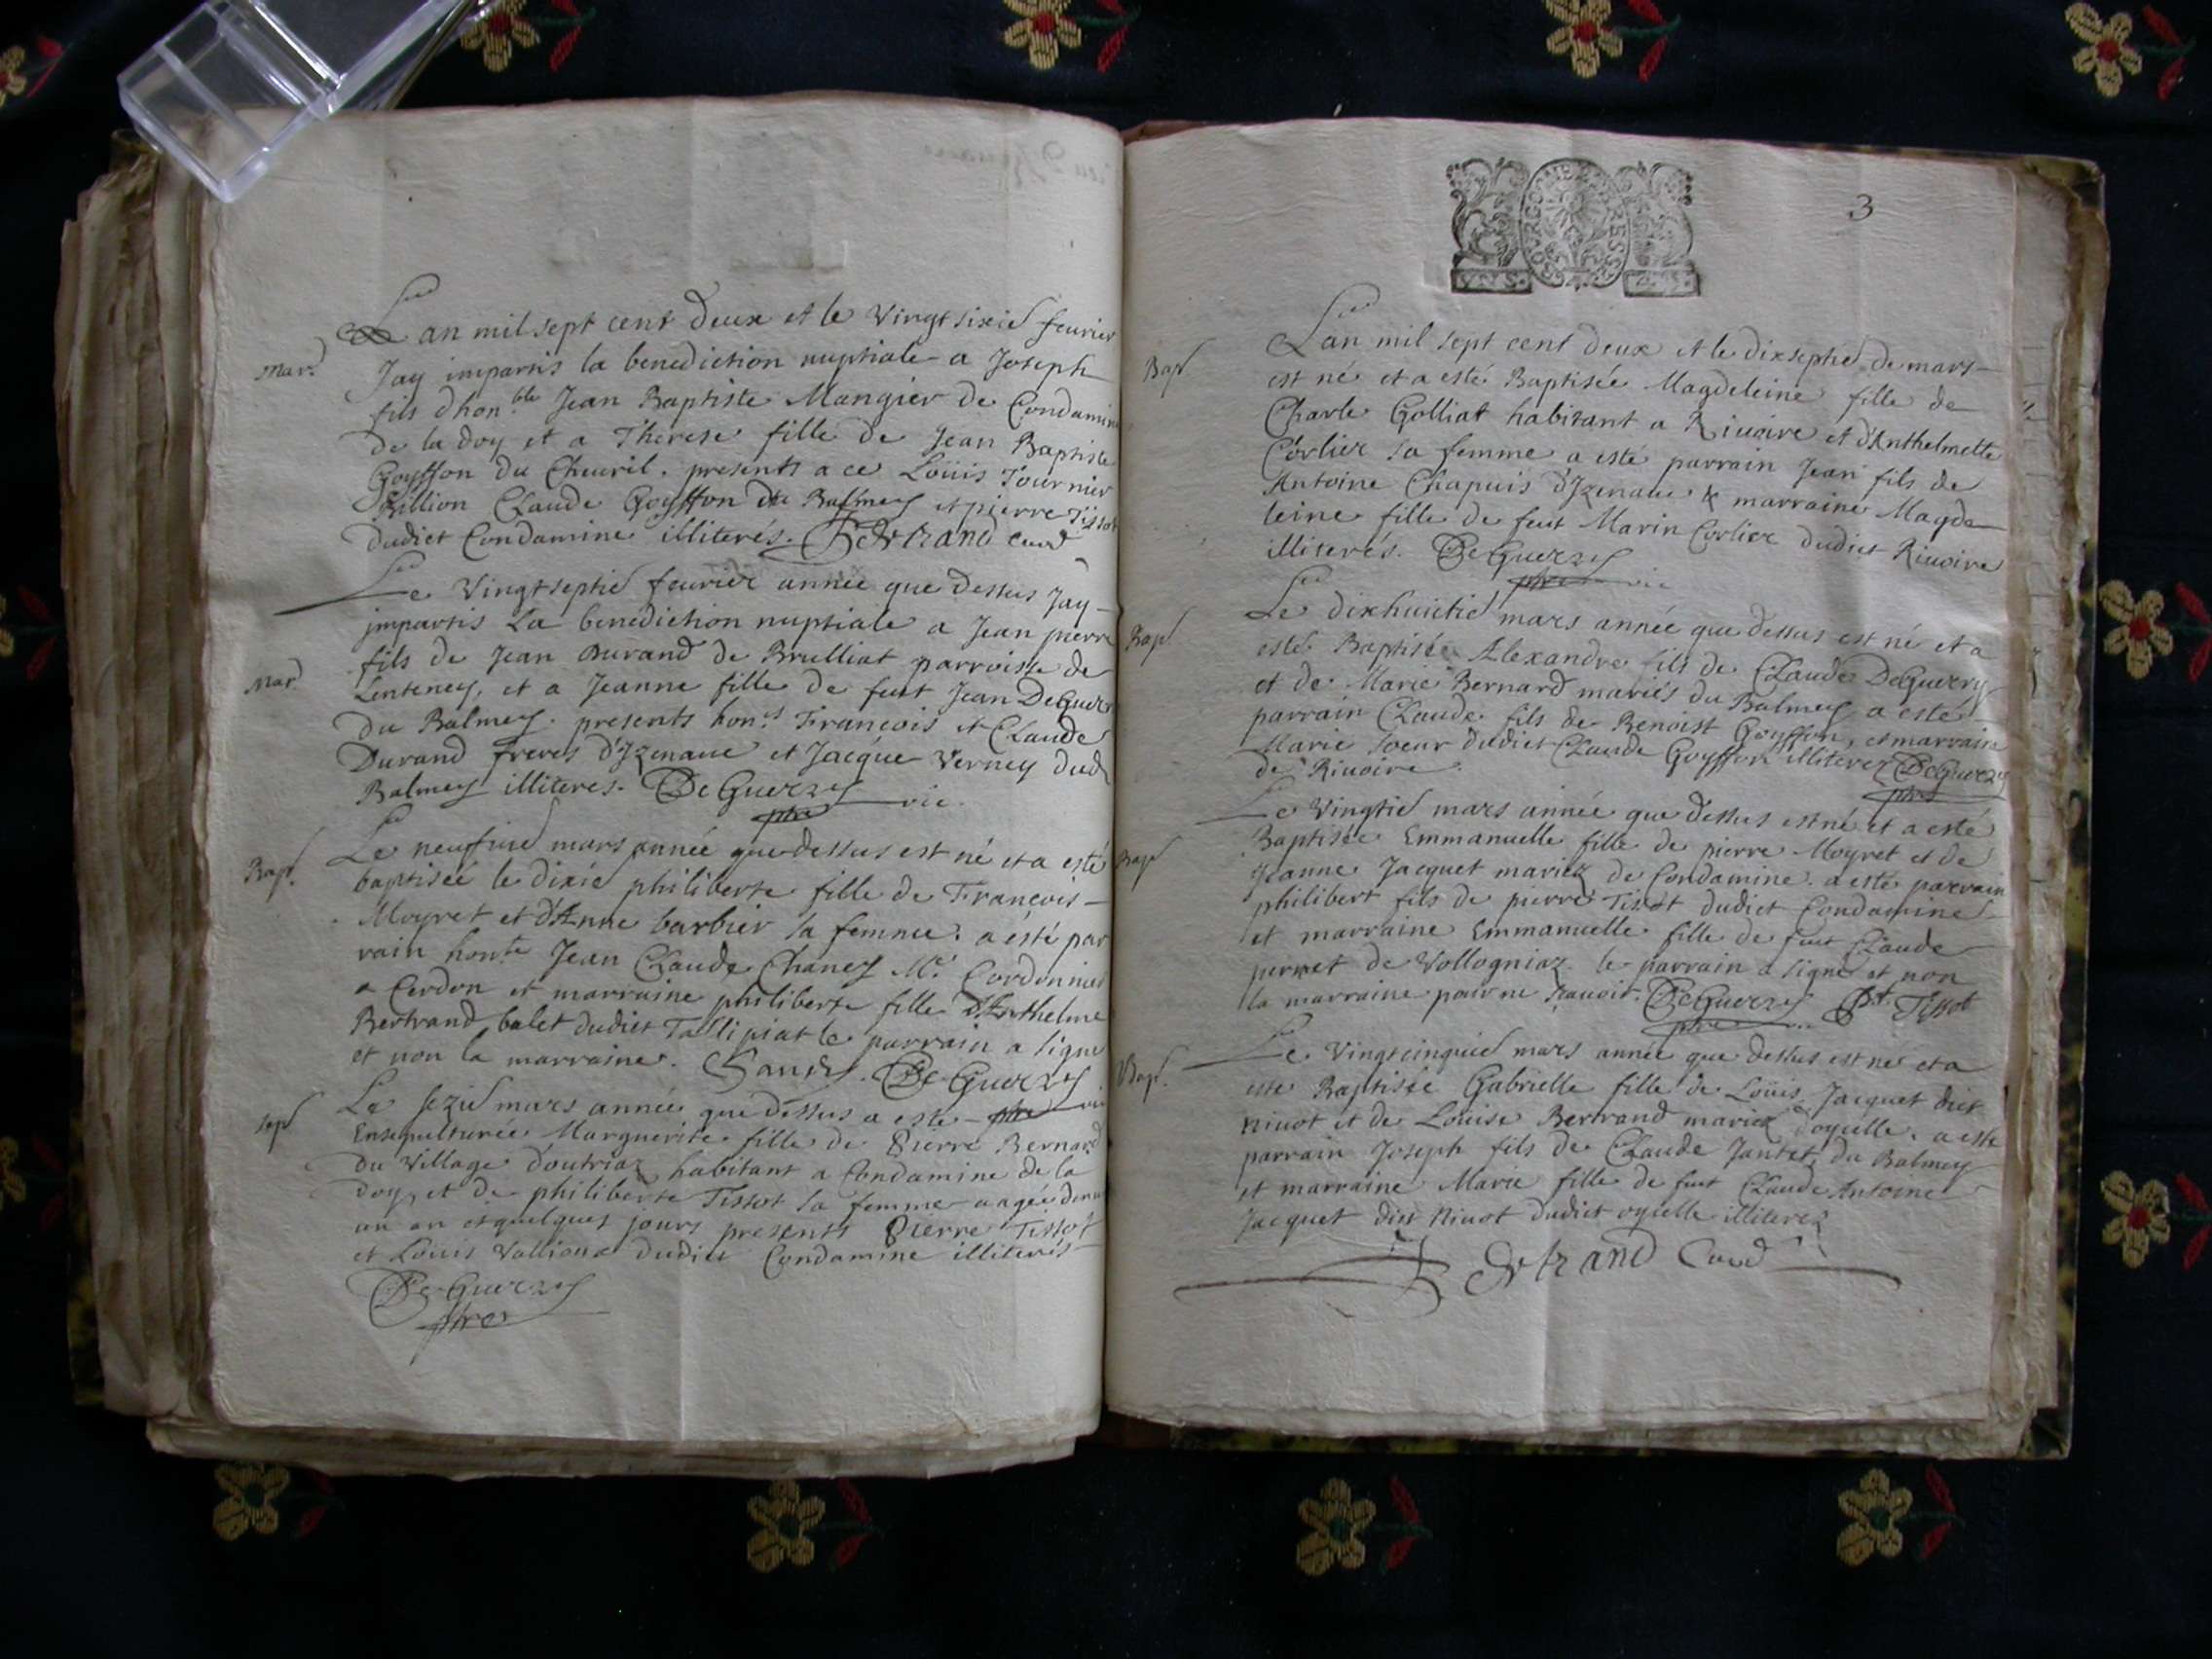 Lan mil sept cent deux et le Vingt sixie feurier
Mar.
Jay impartis la benediction nuptiale a Joseph
fils dhon.ble Jean Baptiste Mangier de Condamine
de la doy et a Therese fille de Jean Baptiste
Goyffon du Cheuril. presents a ce Loüis Tournier
Claude Goyffon du Balmey et pierre Tissot
dudict Condamine illiterés. Bertrand curé
Le Vingtseptie feurier année que dessus Jay
impartis La benediction nuptiale a Jean pierre
fils de Jean Durand de Brulliat parroisse de
Mar.
Lenteney, et a Jeanne fille de feut Jean DeGuerry
du Balmey. presents hon.s Francois et Claude
Durand freres d'Izenaue et Jacque Verney dud
Balmey illiteres. DeGuerry
ptre vic.
Le neufuie mars année que dessus est né et a esté
Bap.
baptiseé le dixie philiberte fille de Francois
Moyret et d'Anne barbier sa femme. a esté par
rain hon.te Jean Claude Chaney M.e Cordonnier
a Cerdon et marraine philiberte fille d'Anthelme
Bertrand balet dudict le parrain a signe
et non la marraine. DeGuerry
ptre vic
Le sezie mars année que dessus a este
sep
Ensepulturée Marguerite fille de Pierre Bernard
du Village d'outriaz habitant a Condamine de la
doy, et de philiberte Tissot sa femme aagée denui
un an et quelques jours presents Pierre Tissot
et Loüis Vallioux dudict Condamine illiterés
DeGuerry
ptre
3
BOURGOGNE BRESSE
Lan mil sept cent deux et le dixseptie de mars
Bap
est né et a esté Baptisée Magdeleine fille de
Charle Golliat habitant a Riuoire et d'Anthelmette
Corlier sa femme a esté parrain Jean fils de
Antoine Chapuis d'Izenaue & marraine Magde
leine fille de feut Marin Corlier dudict Riuoire
illiterés. DeGuerry
ptre vic
Le dixhuictie mars année que dessus est né et a
Bap.
esté Baptisée Alexandre fils de Claude DeGuerry
et de Marie Bernard mariés du Balmey a esté
parrain Claude fils de Benoist Goyffon, et marraine
Marie soeur dudict Claude Goyffon illiterez DeGuerry
de Riuoire. ptre
Le Vingtie mars année que dessus est né et a esté
Bap
Baptisée Emmanuelle fille de pierre Moyret et de
Jeanne Jacquet mariez de Condamine. a esté parrain
philibert fils de pierre Tissot dudict Condamine
et marraine Emmanuelle fille de feut Claude
pernet de Vollogniaz. le parrain a signé et non
la marraine pour ne sçauoir. DeGuerry Pt. Tissot
ptre
Le Vingtcinquie mars année que dessus est né et a
Bap.
este Baptisée Gabrielle fille de Loüis Jacquet dict
niuot et de Louise Bertrand mariez d'oyselle. a este
parrain Joseph fils de Claude Jantet du Balmey
et marraine Marie fille de feut Claude Antoine
Jacquet dict Niuot dudict oyselle illiterez
Bertrand Curé